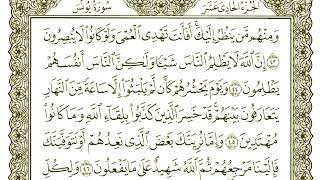 سُورَةُ يُونُس
الجُزْءُ الحَادِي عَشَر
وَمِنْهُم مَّن يَنظُرُ إِلَيْكَ ۚ أَفَأَنتَ تَهْدِي ٱلْعُمْىَ وَلَوْ كَانُوا۟ لَا يُبْصِرُونَ
٤٣ إِنَّ ٱللَّهَ لَا يَظْلِمُ ٱلنَّاسَ شَيْـًٔا وَلَـٰكِنَّ ٱلنَّاسَ أَنفُسَهُمْ
يَظْلِمُونَ ٤٤ وَيَوْمَ يَحْشُرُهُمْ كَأَن لَّمْ يَلْبَثُوٓا۟ إِلَّا سَاعَةً مِّنَ ٱلنَّهَارِ
يَتَعَارَفُونَ بَيْنَهُمْ ۚ قَدْ خَسِرَ ٱلَّذِينَ كَذَّبُوا۟ بِلِقَآءِ ٱللَّهِ وَمَا كَانُوا۟
مُهْتَدِينَ ٤٥ وَإِمَّا نُرِيَنَّكَ بَعْضَ ٱلَّذِى نَعِدُهُمْ أَوْ نَتَوَفَّيَنَّكَ
فَإِلَيْنَا مَرْجِعُهُمْ ثُمَّ ٱللَّهُ شَهِيدٌ عَلَىٰ مَا يَفْعَلُونَ ٤٦ وَلِكُلِّ